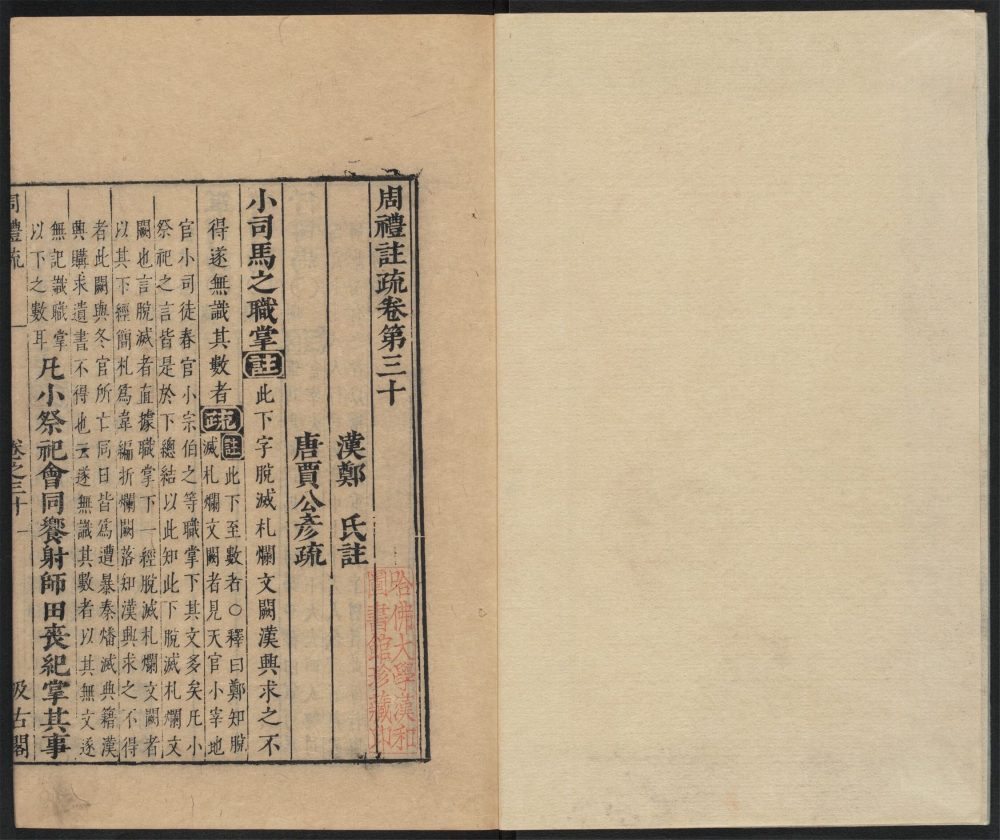 周禮註疏卷第三十
漢鄭 氏註
唐賈公彥疏
小司馬之職掌註此下字脫滅札爛文闕漢興求之不
得遂無識其數者疏註此下至數者○釋曰鄭知脫
滅札爛文闕者見天官小宰地
官小司徒春官小宗伯之等職掌下其文多矣凡小
祭祀之言皆是於下總結以此知此下脫滅札爛文
闕也言脫滅者直據職掌下一經脫滅札爛文闕者
以其下經簡札為韋編折爛闕落知漢興求之不得
者此闕與冬官所亡同日皆為遭暴秦燔滅典籍漢
興購求遺書不得也云遂無識其數者以其無文遂
無記識職掌
以下之數耳凡小祭祀會同饗射師田喪紀掌其事
周禮疏 卷之三十 一 汲古閣
哈佛大學漢和
圖書館珍藏印